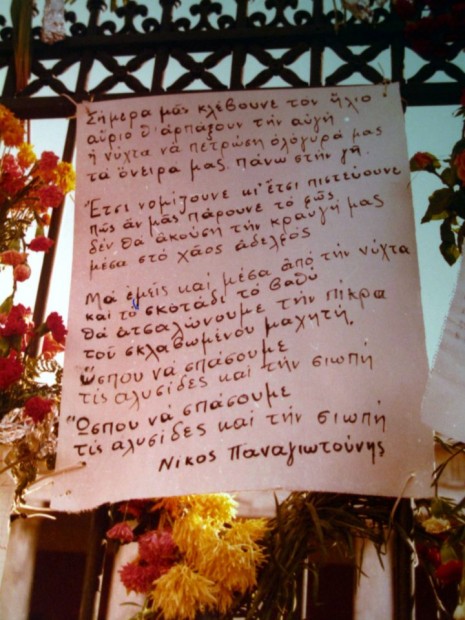 Σήμερα μᾶς κλέβουνε τόν ἥλιο
αὔριο θ' ἁρπάξουν τήν αὐγή
ἡ νύχτα νά πετρώση ὁλόγυρά μας
τά ὄνειρα μας πάνω στήν γῆ.
Ἔτσι νομίζουνε κι' ἔτσι πιστεύουνε
πῶς ἄν μᾶς πάρουνε τό φῶς
δέν θά ἀκούση τήν κραυγή μας
μέσα στό χάος ἀδελφός
Μά ἐμεῖς καί μέσα ἀπό τήν νύχτα
καί τό σκοτάδι τό βαθύ
θά ἀτσαλώνουμε τήν πίκρα
τοῦ σκλαβωμένου μαχητή.
Ὥσπου νά σπάσουμε
τίς αλυσίδες καί τήν σιωπή
Ὥσπου νά σπάσουμε
τίς αλυσίδες καί τήν σιωπή
Νίκος Παναγιωτούνης